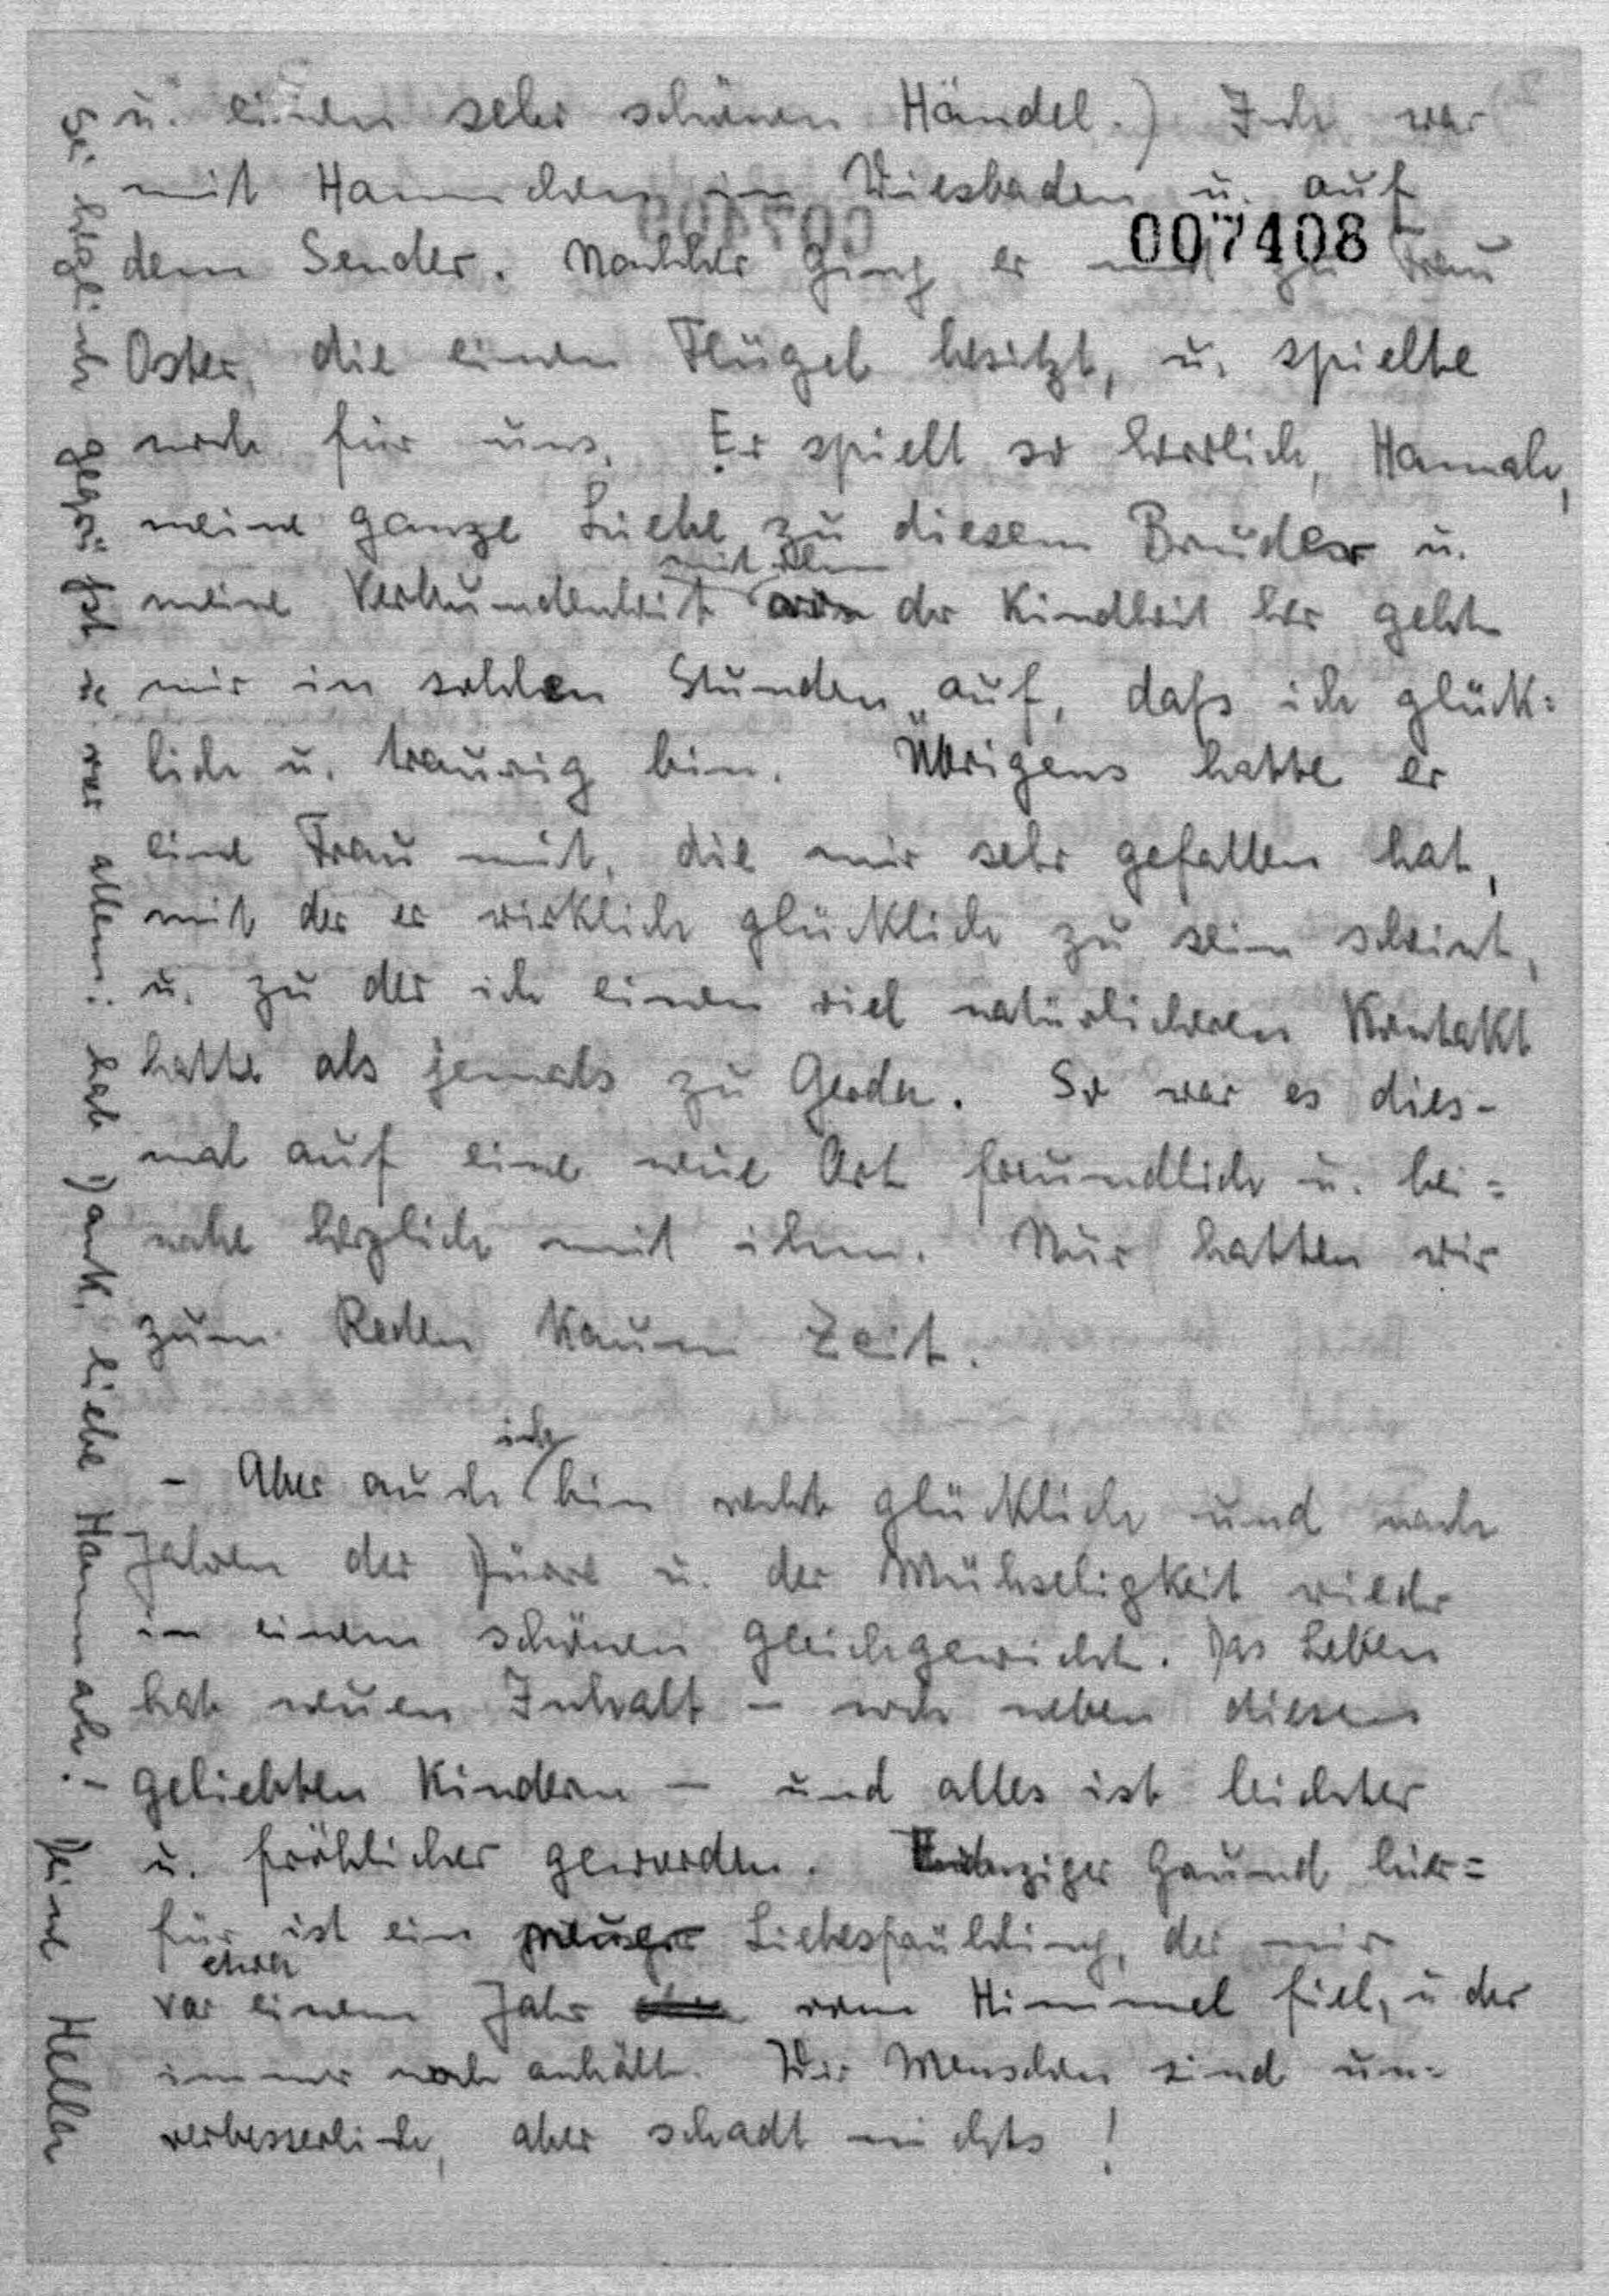 u. einen sehr schönen Händel.) Ich war
mit Hannchen in Wiesbaden u. auf
007408
dem Sender. Nachher ging er mit zu Frau
Oster, die einen Flügel besitzt, u. spielte
noch für uns. Er spielt so herrlich, Hannah,
meine ganze Liebe zu diesem Bruder u.
mit ihm
meine Verbundenheit von der Kindheit her geht
mir in solchen Stunden auf, daß ich glück=
lich u. traurig bin. Übrigens hatte er
eine Frau mit, die mir sehr gefallen hat,
mit der er wirklich glücklich zu sein scheint,
u. zu der ich einen viel natürlicheren Kontakt
hatte als jemals zu Gerda. So war es dies-
mal auf eine neue Art freundlich u. bei=
nahe herzlich mit ihm. Nur hatten wir
zum Reden kaum Zeit.
ich
- Aber auch bin recht glücklich und nach
Jahren der Dürre u. der Mühseligkeit wieder
in einem schönen Gleichgewicht. Das Leben
hat neuen Inhalt – noch neben diesen
geliebten Kindern – und alles ist leichter
u. fröhlicher geworden. Einziger Grund hier=
für ist ein neuer Liebesfrühling, der mir
etwa
vor einem Jahr vom Himmel fiel, u der
immer noch anhält. Wir Menschen sind un=
verbesserlich, aber schadt nichts!
Sei herzlich gegrüßt u. vor allem: hab Dank, liebe Hannah! – Deine Hella